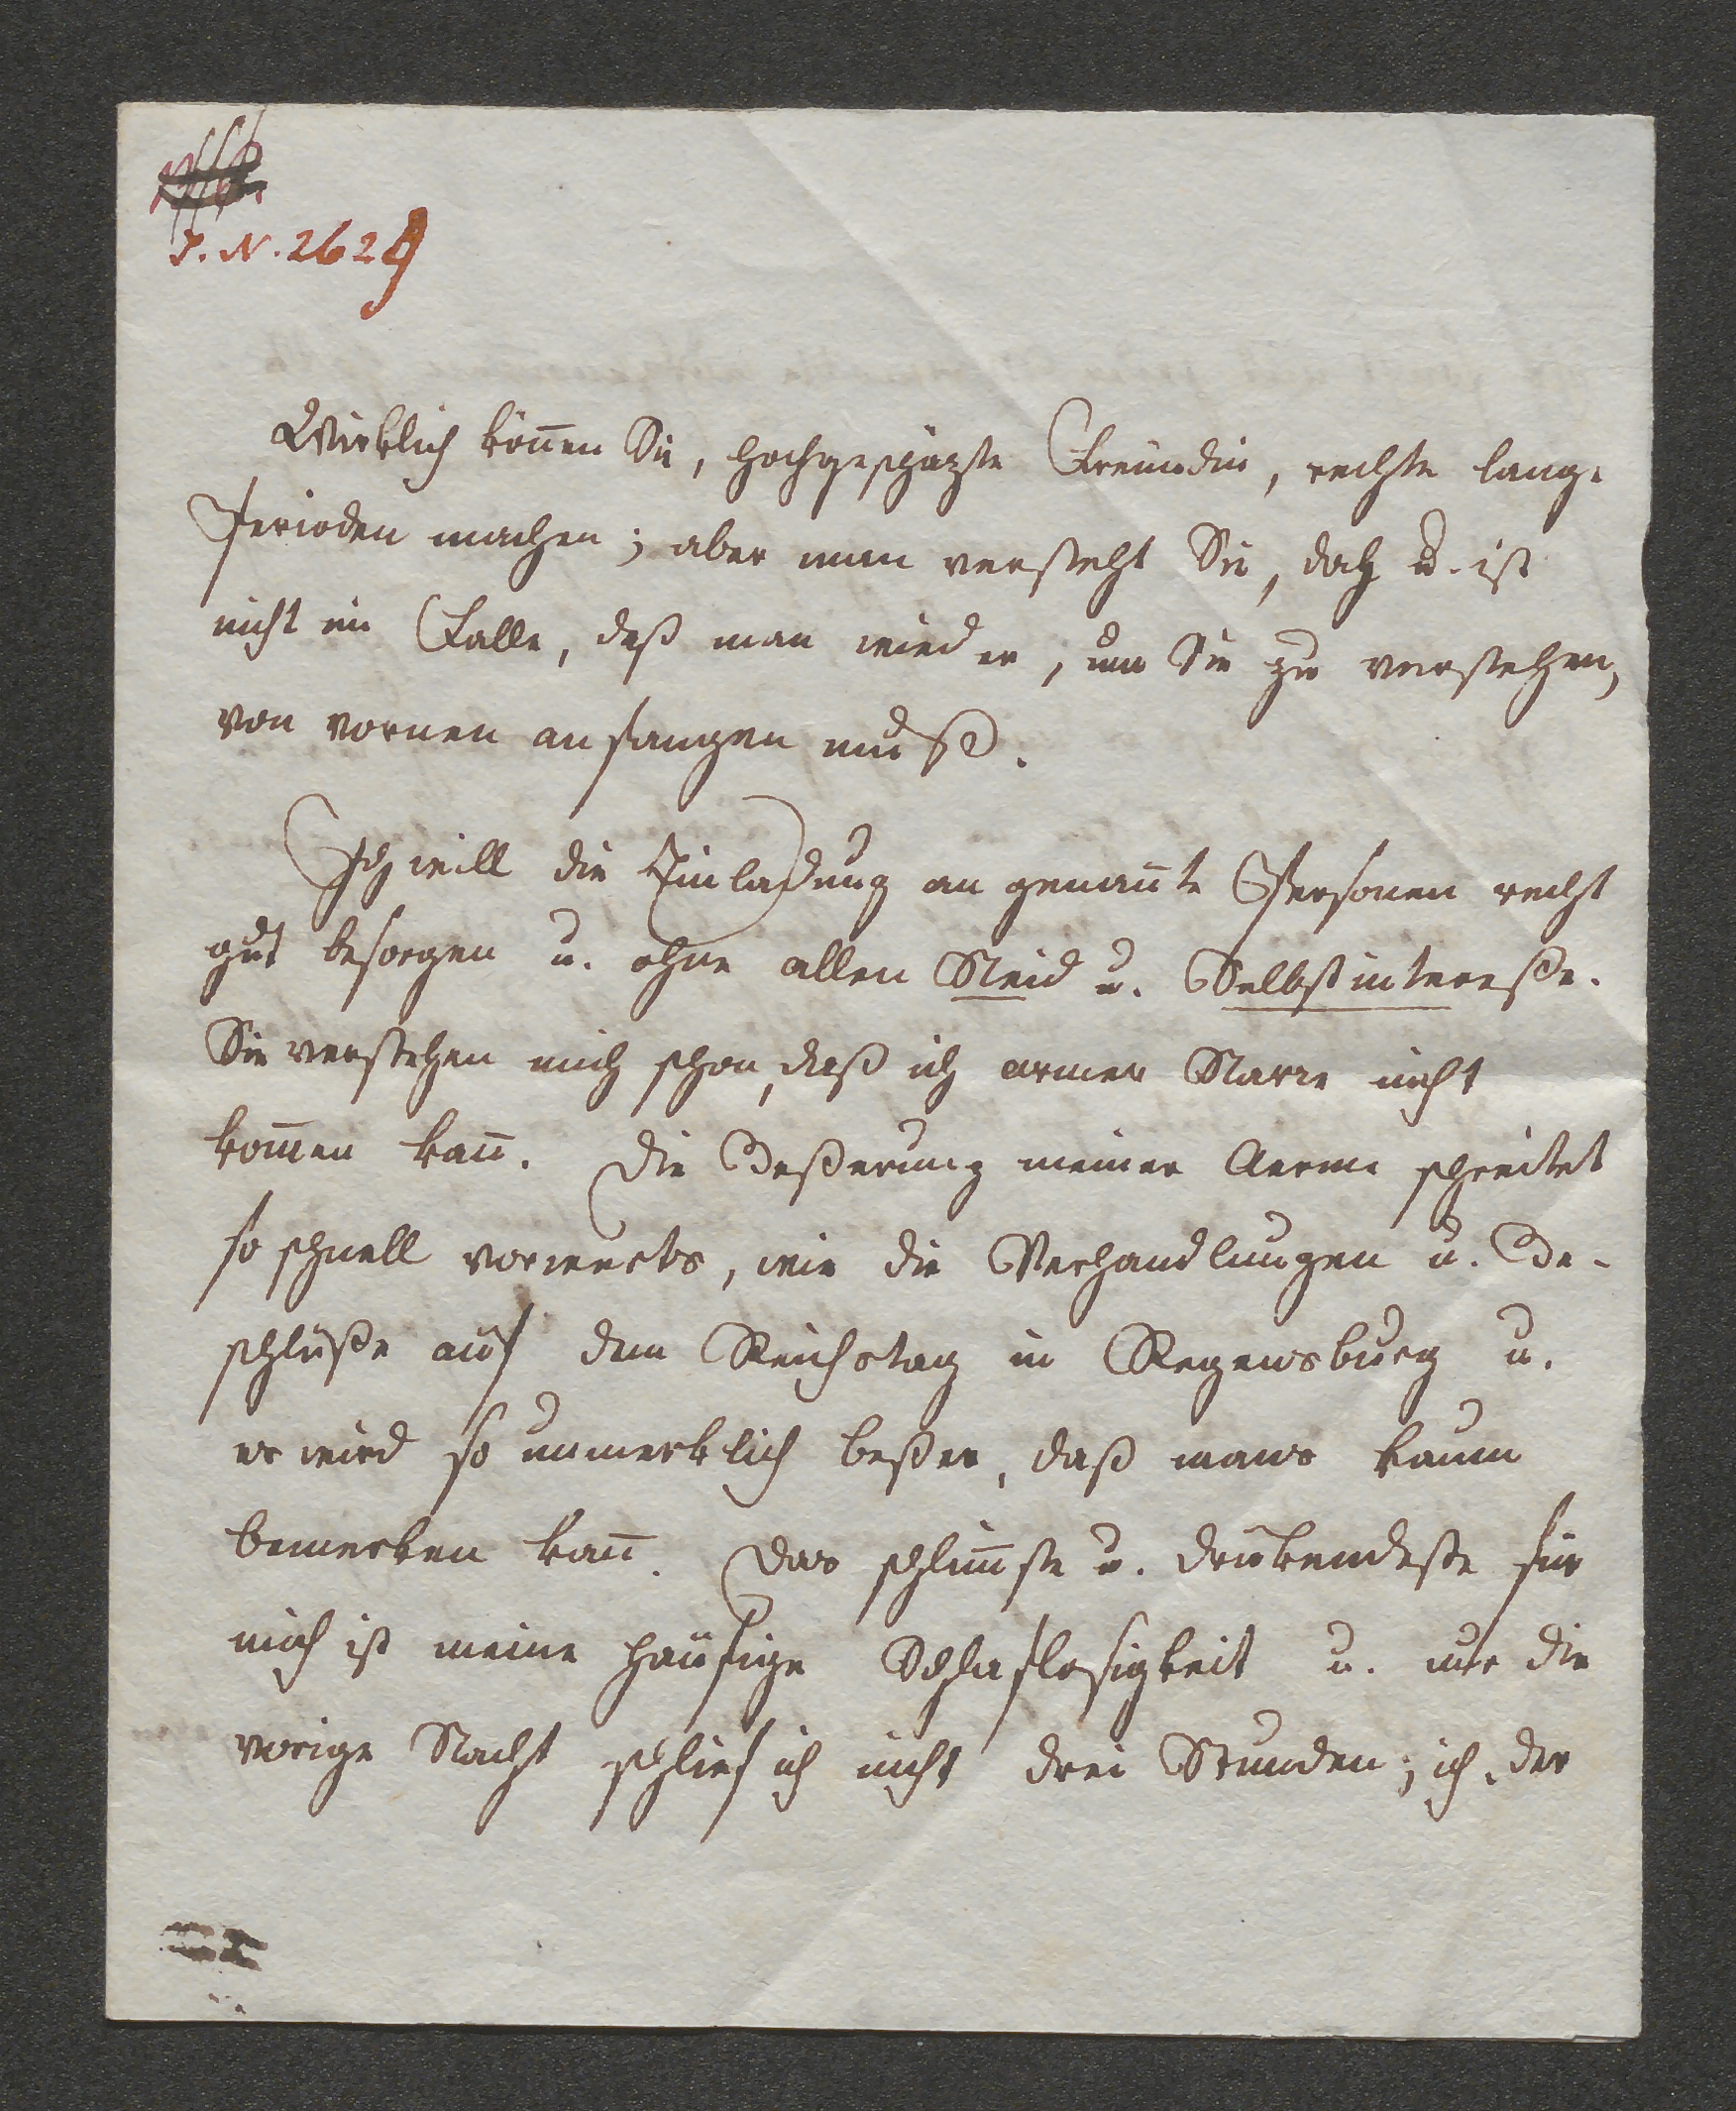 J. N. 2629
Wirklich können Sie, hochgeschäzte Freundin, rechte lange
Perioden machen; aber man versteht Sie, doch u. ist
nicht im Falle, daß man wieder, um Sie zu verstehen,
von vornen anfangen muß.
Ich will die Einladung an genannte Personen recht
gut besorgen u. ohne allen Neid u. Selbstintereße.
Sie verstehen mich schon, daß ich armer Narre nicht
kom̅en kan̅. Die Beßerung meiner Aerme schreitet
so schnell vorwerts, wie die Verhandlungen u. Be-
schlüße auf dem Reichstag in Regensburg u.
es wird so unmerklich beßer, daß mans kaum
bemerken kan̅. Das schlim̅ste u. drükendeste für
mich ist meine häufige Schlaflosigkeit u. nur die
vorige Nacht schlief ich nicht drei Stunden; ich, der